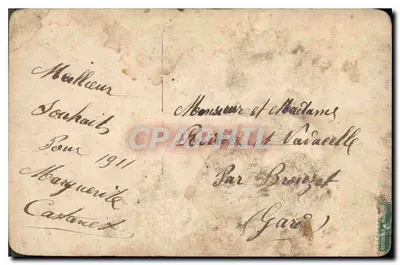 Meilleur
Souhaits
Pour 1911
Marguerite
Castanet
Monsieur et Madame
Vadacelle
Par Brouzet
(Gard)
CARTE